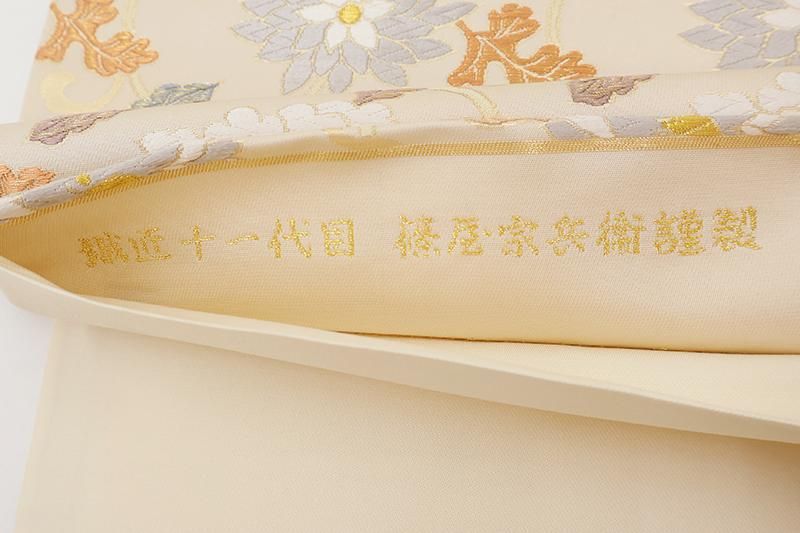 織匠十一代目 屋宗兵衛謹製